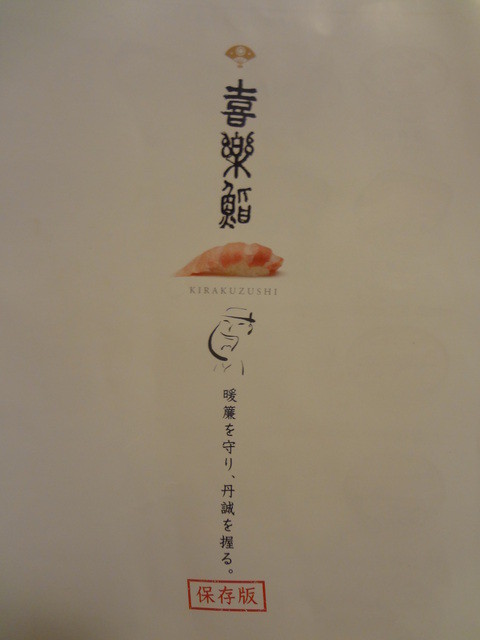 喜樂鮨
KIRAKUZUSHI
暖簾を守り、丹誠を握る。
保存版